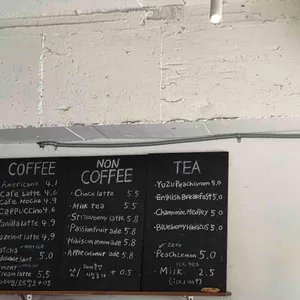 COFFEE
Americano 4.1
Cafe Latte 4.6
Cafe Mocha 4.9
Cappuccino 4.6
Vanilla Latte 4.9
Hazelnut Latte 4.9
5.5
Cream Latte 5.5
NON
COFFEE
·Choco Latte 5.5
·Milk Tea 5.5
·Strawberry Latte 5.8
·Passionfruit ade 5.8
·Hibiscus lemonade 5.8
·Applecoconut ade 5.8
+ 0.5
TEA
·Yuzu Peach Lemon 5.0
·English Breakfast 5.0
·Chamomile Medley 5.0
·Blueberry Hibiscus 5.0
Zero
Peach Lemon 5.0
ice tea
Milk 2.5